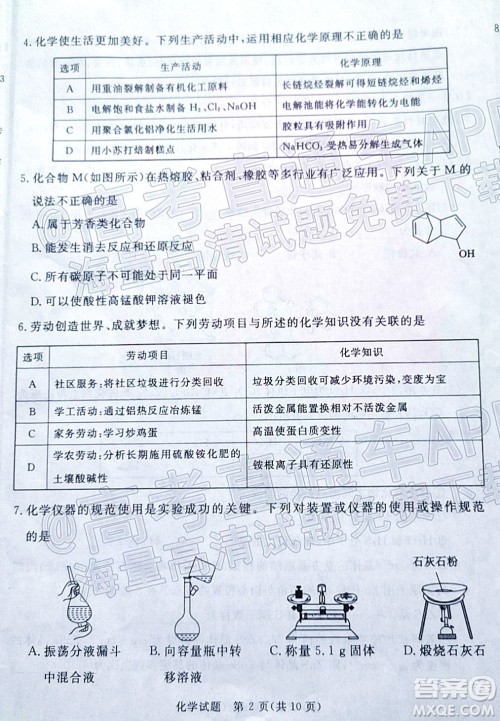 4.化学使生活更加美好。下列生产活动中,运用相应化学原理不正确的是
选项 生产活动 化学原理
A 用重油裂解制备有机化工原料 长链烷烃裂解可得短链烷烃和烯烃
B 电解饱和食盐水制备 H₂、Cl₂、NaOH 电解池将化学能转化为电能
C 用聚合氯化铝净化生活用水 胶粒具有吸附作用
D 用小苏打焙制糕点 NaHCO₃ 受热易分解生成气体
5.化合物 M(如图所示)在热熔胶、粘合剂、橡胶等多行业有广泛应用。下列关于 M 的
说法不正确的是
A.属于芳香类化合物
B.能发生消去反应和加成反应
C.所有碳原子不可能在同一平面
D.可以使酸性高锰酸钾溶液褪色
OH
6.劳动创造世界、成就梦想。下列劳动项目与所述的化学知识没有关联的是
选项 劳动项目 化学知识
A 社区服务:将社区垃圾进行分类回收 垃圾分类回收可减少环境污染,变废为宝
B 学工活动:通过铝热反应冶炼锰 活泼金属置换不活泼金属
C 家务劳动:学习炒鸡蛋 高温使蛋白质变性
D 学农劳动:分析长期施用硫酸铵化肥的
土壤酸碱性 铵根离子具有还原性
7.化学仪器的规范使用是实验成功的关键。下列对装置或仪器的使用或操作规范
的是
石灰石粉
A.振荡分液漏斗
中混合液
B.向容量瓶中转
移溶液
C.称量 5.1 g 固体
D.煅烧石灰石
化学试题 第 2 页(共 10 页)
@高考直通车APP
海量高清试题免费下载
@高考直通车APP
海量高清试题免费下载
答案圈